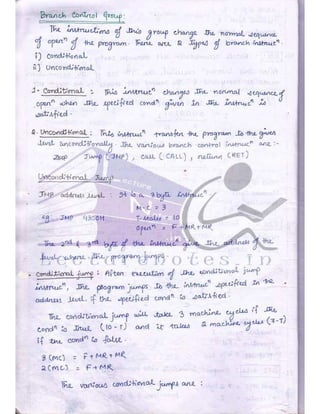 Branch Control Group:
The instructions of this group change the normal sequence
of openⁿ of the program. There are 2 types of branch instrucⁿ.
1) Conditional
2) Unconditional
1. Conditional : This instrucⁿ changes the normal sequence of
openⁿ when the specified condⁿ given in the instrucⁿ is
satisfied.
2. Unconditional : This instrucⁿ transfer the program to the given
level unconditionally. The various branch control instrucⁿ are :-
Jump (JMP), Call (CALL), return (RET)
Unconditional Jump
JMP address level : It is a 3 byte instrucⁿ
M-C = 3
eg. JMP 4300H T-states = 10
openⁿ = F + MR + MR
The 2nd & 3rd byte of the instrucⁿ give the address of the
level where the program jumps.
lecturenotes.in
Conditional jump : After execution of the conditional jump
instrucⁿ, the program jumps to the instrucⁿ specified in the
address level if the specified condⁿ is satisfied.
The conditional jump will take 3 machine cycles if the
condⁿ is true (10-T) and it takes 2 machine cycles (7-T)
if the condⁿ is false.
3 (MC) = F + MR + MR
2 (MC) = F + MR.
The various conditional jumps are :